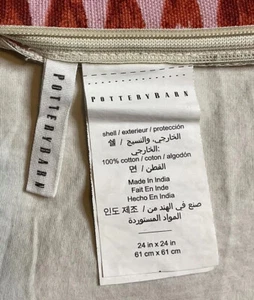 POTTERY BARN
POTTERYBARN
shell / exterieur / protección
쉘 / الخارجي، والنسيج
الخارجي:
100% cotton / coton / algodón
면 / القطن
Made In India
Fait En Inde
Hecho En India
인도 제조 / صنع في الهند من
المواد المستوردة
24 in x 24 in
61 cm x 61 cm